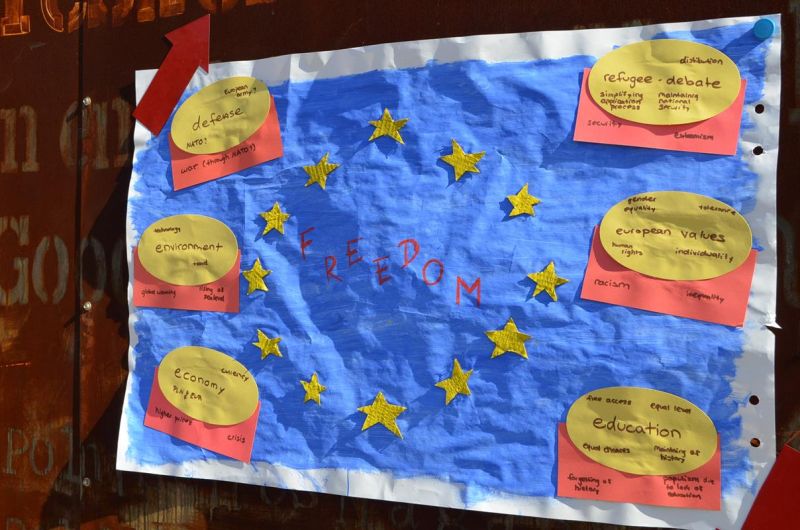 European
army?
defense
NATO?
war (through NATO?)
distibution
refugee-debate
simplifying
application
process
maintaining
national
security
security
extremism
technology
environment
global warming
rising of
sealevel
FREEDOM
gender
equality
tolerance
european values
human
rights
individuality
racism
inequality
currency
economy
PLN & EUR
higher prices
crisis
free access
equal level
education
equal chances
maintaining of
history
forgetting of
history
populism due
to lack of
education